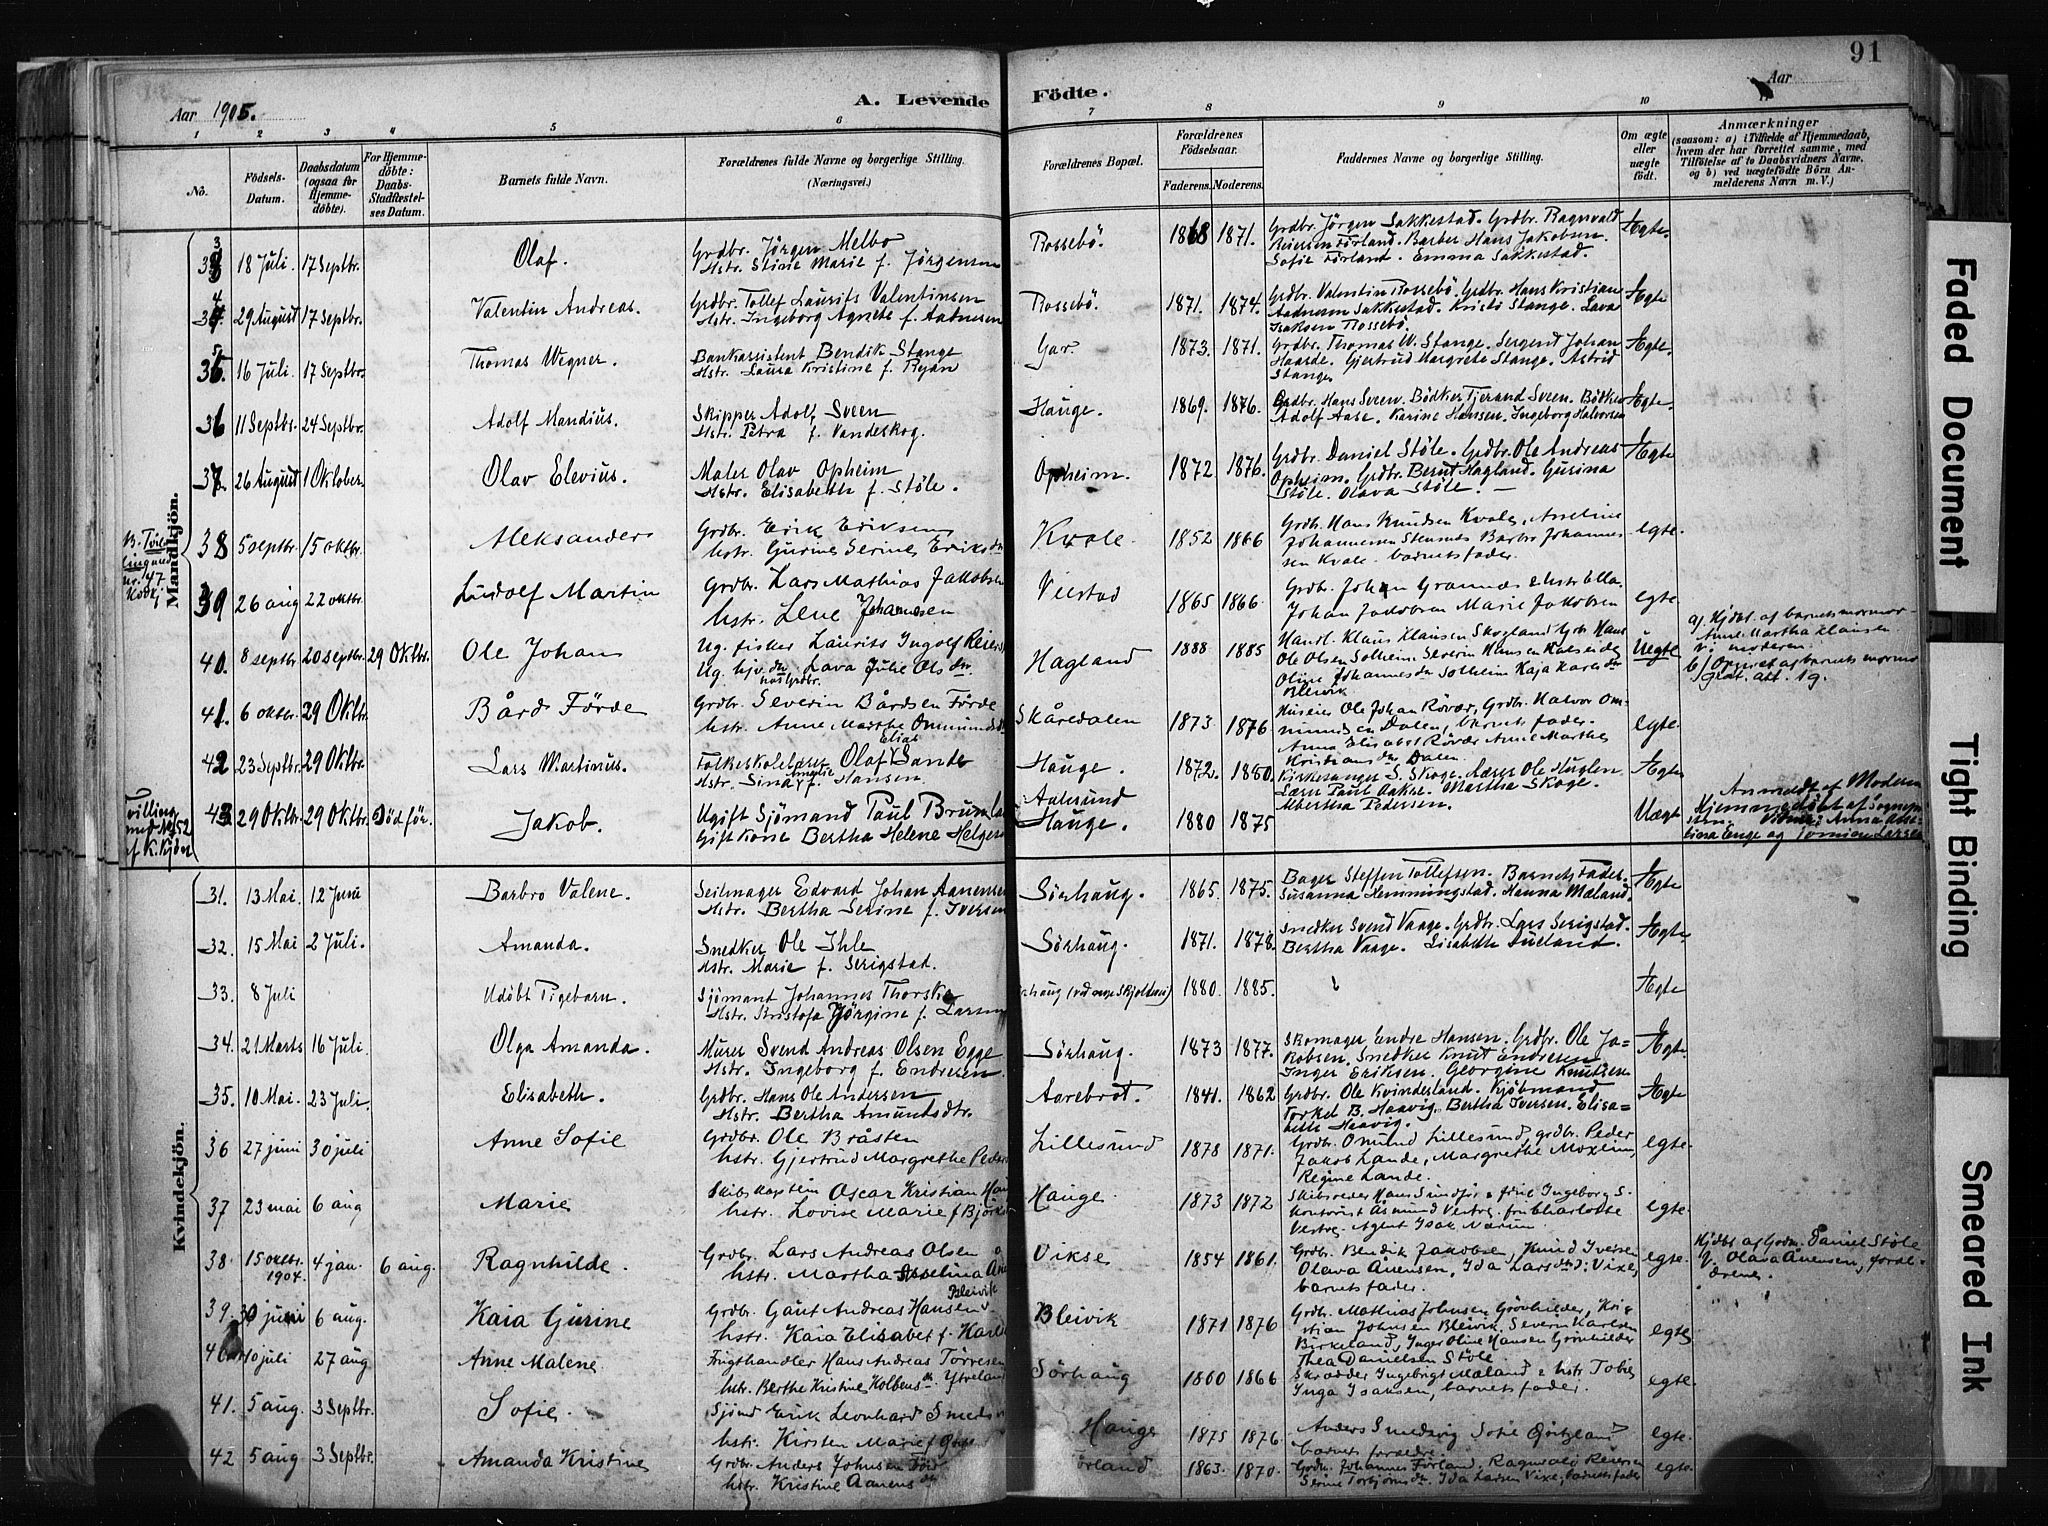 91
Aar 1905.
A. Levende Födte.
Aar
1 2 3 4 5 6 7 8 9 10
No.
Födsels-Datum.
Daabsdatum (ogsaa for Hjemmedöbte).
For Hjemmedöbte: Daabs-Stadfæstelses Datum.
Barnets fulde Navn.
Forældrenes fulde Navne og borgerlige Stilling. (Næringsvei.)
Forældrenes Bopæl.
Forældrenes Födselsaar.
Faderens. Moderens.
Faddernes Navne og borgerlige Stilling.
Om ægte eller uægte födt.
Anmærkninger
(saasom: a) i Tilfælde af Hjemmedaab, hvem der har forrettet samme, med Tilföielse af to Daabsvidners Navne, og b) ved uægtefödte Börn Anmelderens Navn m. V.)
Mandkjön.
33 18 Juli. 17 Septbr. Olaf. Grdbr. Jörgen Melbo Hstr. Stine Marie f. Jörgensen Rossebö. 1868 1871. Grdbr. Jörgen Sakkestad. Grdbr. Ragnvald Reiersen Förland. Barber Hans Jakobsen. Sofie Förland. Emma Sakkestad. Ægte.
34 29 August 17 Septbr. Valentin Andreas. Grdbr. Tollef Laurits Valentinsen Hstr. Ingeborg Agnete f. Aadnesen Rossebö. 1871. 1874. Grdbr. Valentin Rossebö. Grdbr. Hans Kristian Aadnesen Sakkestad. Kristi Stange. Lava Isaksen Rossebö. Ægte
35. 16 Juli. 17 Septbr. Thomas Wegner. Bankassistent Bendik Stange Hstr. Laura Kristine f. Ryan Gar. 1873. 1871. Grdbr. Thomas W. Stange. Sergent Johan Haarde. Gjertrud Margrete Stange. Astrid Stange Ægte.
36 11 Septbr. 24 Septbr. Adolf Mandius. Skipper Adolf Sveen Hstr. Petra f. Vandeskog. Hauge. 1869. 1876. Grdbr. Hans Sveen. Bödker Tjerand Sveen. Bödker Adolf Aase. Karine Hansen. Ingeborg Halvorsen Ægte.
37. 26 August 1 Oktober. Olav Elevius. Maler Olav Opheim Hstr. Elisabeth f. Stöle. Opheim. 1872 1876. Grdbr. Daniel Stöle. Grdbr. Ole Andreas Opheim. Grdbr. Bernt Hagland. Gurina Stöle. Olava Stöle. Ægte
38 5 septbr. 15 oktbr. Aleksander Grdbr. Erik Eriksen hstr. Gurine Serine Eriksdtr Kvale. 1852 1866 Grdb. Hans Knudsen Kvale, Asseline Johannessen Johannessen Kvale. barnets fader. egte.
39 26 aug 22 oktbr. Ludolf Martin Grdbr. Lars Mathias Jakobsen hstr. Lene Johannesen Veestad 1865 1866. Grdbr. Johan Grannæs & hstr Ella. Johan Jakobsen Marie Jakobsen egte.
40. 8 septbr 20 septbr 29 Oktbr. Ole Johan Ug. fisker Laurits Ingolf Reiers Ug. hjv. dn Lava Julie Olsdn. Hagland 1888 1885 Handl. Klaus Klausen Skogland Grb Hans Ole Olsen Solheim Severin Hansen Kalseide Oline Johannesdn Solheim Kaja Karlsdn Bleivik Uegte a) Hjdbt. af barnets mormor Anne Martha Klausen v. moderen.
41. 6 oktbr. 29 Oktbr. Bård Förde Grdbr. Severin Bårdsen Förde hstr. Anne Marthe Ommundsdtr Skåredalen 1873. 1876 Huseier Ole Johan Rövær, Grdbr. Halvor Ommundsen Dalen, barnets fader. Anna Elisabet Rövær Anne Marthe Kristiansdn Dalen egte.
42 23 Septbr. 29 Oktbr. Lars Martinius. Folkeskolelærer Olaf Elias Sande Hstr. Sina Amalie f. Hansen. Hauge. 1872. 1880. Kirkesanger S. Skoge. Lærer Ole Huglen. Lærer Paul Aakre. Martha Skoge. Albertha Pedersen. Ægte
Tvilling med No 52 af K.kjön
43. 29 Oktbr. 29 Oktbr. Död för. Jakob. Ugift Sjömand Paul Brun Gift Kone Bertha Helene Helgesen Aalesund Hauge. 1880 1875 Uægte Anmeldt af Moderen Hjemmedöbt af
Kvindekjön.
31. 13 Mai. 12 Juni Barbro Valene. Seilmager Edvard Johan Aanensen Hstr. Bertha Serine f. Iversen Sörhaug. 1865. 1875. Bager Steffen Tollefsen. Barnets Fader. Susanna Hemmingstad. Hanna Mæland. Ægte
32. 15 Mai 2 Juli. Amanda. Snedker Ole Ihle Hstr. Marie f. Serigstad. Sörhaug. 1871. 1878. Snedker Svend Vaage. Grdbr. Lars Serigstad. Bertha Vaage. Lisabeth Lueland. Ægte
33. 8 Juli Udöbt Pigebarn. Sjömand Johannes Thorske Hstr. Kristofa Jörgine f. Larsen Sörhaug 1880. 1885. Ægte
34. 21 Marts 16 Juli. Olga Amanda. Murer Svend Andreas Olsen Egge Hstr. Ingeborg f. Endresen. Sörhaug. 1873 1877. Skomager Endre Hansen. Grdbr. Ole Jakobsen. Snedker Knut Endresen Inger Eriksen. Georgine Knutsen Ægte.
35. 10 Mai. 23 Juli. Elisabeth. Grdbr. Hans Ole Andersen Hstr. Bertha Amundsdtr. Aarebrot. 1841. 1862 Grdbr. Ole Kvinderland. Kjöbmand Torkel B. Haavig. Bertha Iversen. Elisabeth Haavig. Ægte
36 27 juni 30 juli Anne Sofie Grdbr. Ole Bråsten hstr. Gjertrud Margrethe Peders Lillesund 1878 1871. Grdbr. Omund Lillesund, grdbr. Peder Jakob Lande, Margrethe Moxeim, Regine Lande. egte.
37 23 mai 6 aug Marie Skibskaptein Oscar Kristian Hau hstr. Lovise Marie f. Björk Hauge. 1873 1872 Skibsreder Hans Sundför & frk Ingeborg S. Kontorist Åsmund Vestre. fru Charlotte Vestre. Agent Isak Nærum. egte.
38. 15 oktbr. 1904. 4 jan. 6 aug. Ragnhilde. Grdbr. Lars Andreas Olsen hstr. Martha Asselina Vikse 1854 1861. Grdbr. Bendik Jakobsen, Knud Iversen Olava Anensen, Ida Larsdn: Vixe, barnets fader. egte. Hjdbt af Grdm. Daniel Stöle v. Olava Anensen, forældrene.
39. 30 juni 6 aug. Kaia Gurine Grdbr. Gaut Andreas Hansen Bleivik hstr. Kaia Elisabet f. Karls Bleivik 1871 1876 Grdbr. Mathias Johnsen Grönhilder, Kristian Johnsen Bleivik. Severin Karlsen Birkeland, Inger Oline Hansen Grönhilder Thea Danielsen Stöle egte
40. 10 juli 27 aug Anne Malene Frugthandler Hans Andreas Törresen hstr. Berthe Kristine Kolbensdn Ytreland Sörhaug 1860 1866 Skrædder Ingebrigt Mæland & hstr Tobie, Inga Isaksen, barnets fader. egte.
41. 5 aug. 3 Septbr. Sofie. Sjömd Erik Leonhard Smedsv hstr. Kirsten Marie f. Hauge 1875 1876. Anders Smedsvig Sofie barnets forældre. egte.
42 5 aug 3 Septbr. Amanda Kristine Grdbr. Anders Johnsen Förl hstr. Kristine Aanensdn Förland 1863. 1870. Grdbr. Johannes Förland, Ragnvald Reiersen Serine Torbjörnsdn, Ida Larsen Vixe, barnets fader egte.
Faded Document
Tight Binding
Smeared Ink